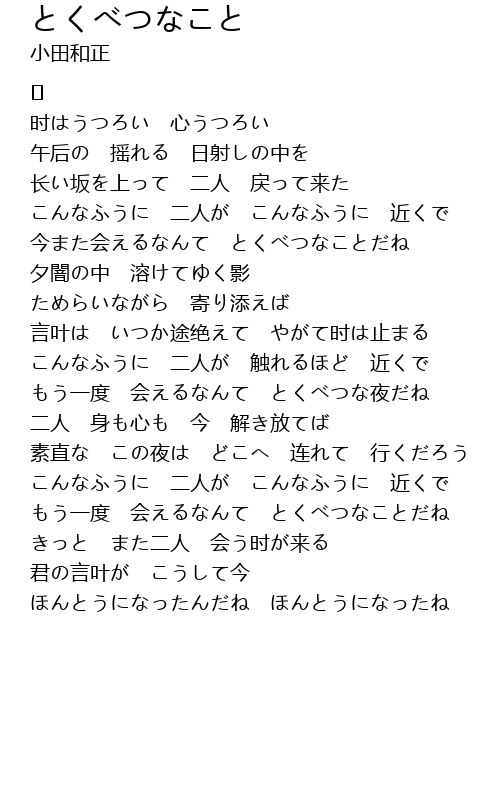 とくべつなこと
小田和正
时はうつろい　心うつろい
午后の　揺れる　日射しの中を
长い坂を上って　二人　戻って来た
こんなふうに　二人が　こんなふうに　近くで
今また会えるなんて　とくべつなことだね
夕闇の中　溶けてゆく影
ためらいながら　寄り添えば
言叶は　いつか途绝えて　やがて时は止まる
こんなふうに　二人が　触れるほど　近くで
もう一度　会えるなんて　とくべつな夜だね
二人　身も心も　今　解き放てば
素直な　この夜は　どこへ　连れて　行くだろう
こんなふうに　二人が　こんなふうに　近くで
もう一度　会えるなんて　とくべつなことだね
きっと　また二人　会う时が来る
君の言叶が　こうして今
ほんとうになったんだね　ほんとうになったね